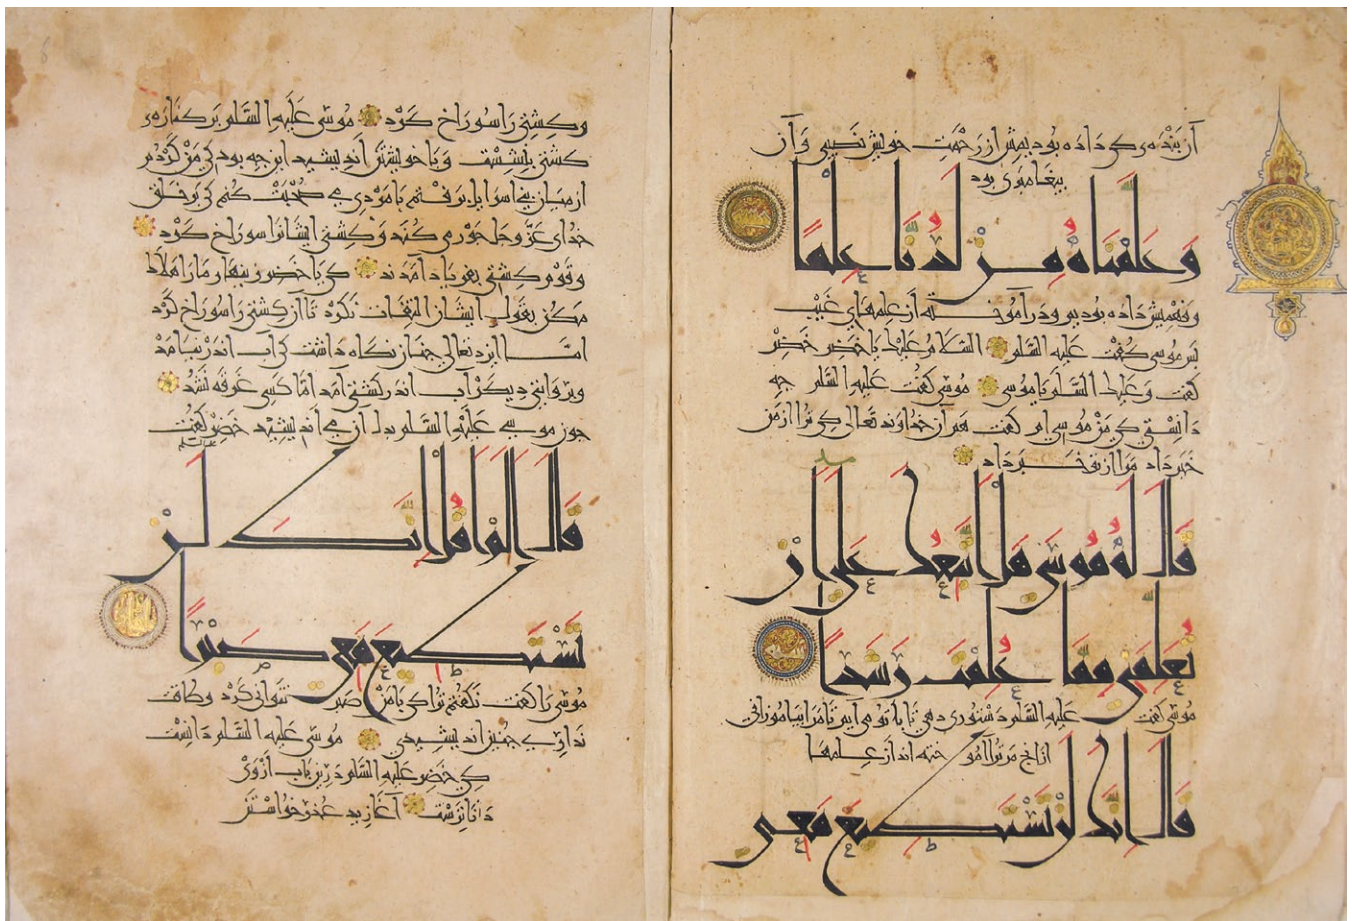 آن بنده‌ی کی داده بودیمش از رحمت خویش نصیبی و آن
بیغامبری بود
وَعَلَّمْنَاهُ مِنْ لَدُنَّا عِلْمًا
و فهمیش داده بودیم و درآموخته از علمهای غیب
بس موسی کفت علیه السلم السلام علیک یا خضر خضر
کفت و علیک السلم یا موسی موسی کفت علیه السلم چه
دانستی کی من موسی ام کفت هم آن خداوند تعالی کی ترا از من
خبر داد مرا از تو خبر داد
قَالَ لَهُ مُوسَى هَلْ أَتَّبِعُكَ عَلَى أَنْ
تُعَلِّمَنِ مِمَّا عُلِّمْتَ رُشْدًا
موسی کفت علیه السلم دستوری دهی تا با تو می آیم تا مرا بیاموزانی
ازانج مر ترا آموخته اند از علمها
قَالَ إِنَّكَ لَنْ تَسْتَطِيعَ مَعِيَ
و کشتی را سوراخ کرد موسی علیه السلم بر کناره
کشتی بنشست و با خویشتن اندیشید این چه بود کی من کردم
از میان بنی اسرایل برفتم با مردی صحبت کنم کی بر خلق
خدای عز و جل جوری کند و کشتی ایشانرا سوراخ کرد
و قوم کشتی بفریاد آمدند کی یا خضر زینهار ما را هلاک
مکن بقول ایشان التفات نکرد تا آن کشتی را سوراخ کرد
امّا ایزد تعالی چنان نکاه داشت کی آب اندر نیامد
و بروایتی دیکر آب اندر کشتی آمد امّا کسی غرقه نشد
چون موسی علیه السلم بدل آن می اندیشید خضر کفت
قَالَ أَلَمْ أَقُلْ إِنَّكَ لَنْ
تَسْتَطِيعَ مَعِيَ صَبْرًا
موسی را کفت نکفتم ترا کی با من صبر نتوانی کرد و طاقت
نداری چنین اندیشیدی موسی علیه السلم دانست
کی خضر علیه السلم درین باب ازوی
داناترست آغازید عذر خواستن